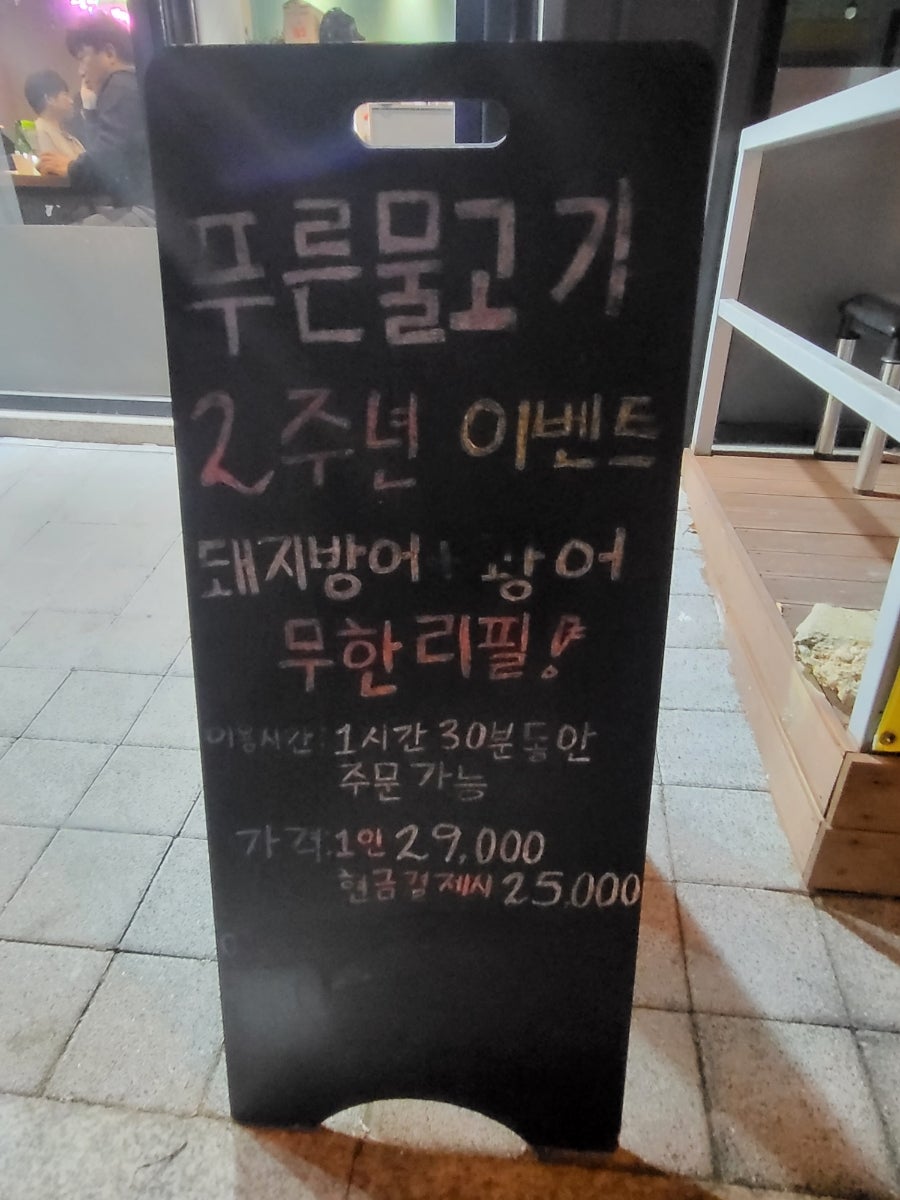 푸른물고기
2주년 이벤트
돼지방어 + 광어
무한리필!
이용시간: 1시간 30분동안
주문가능
가격: 1인 29,000
현금결제시 25,000